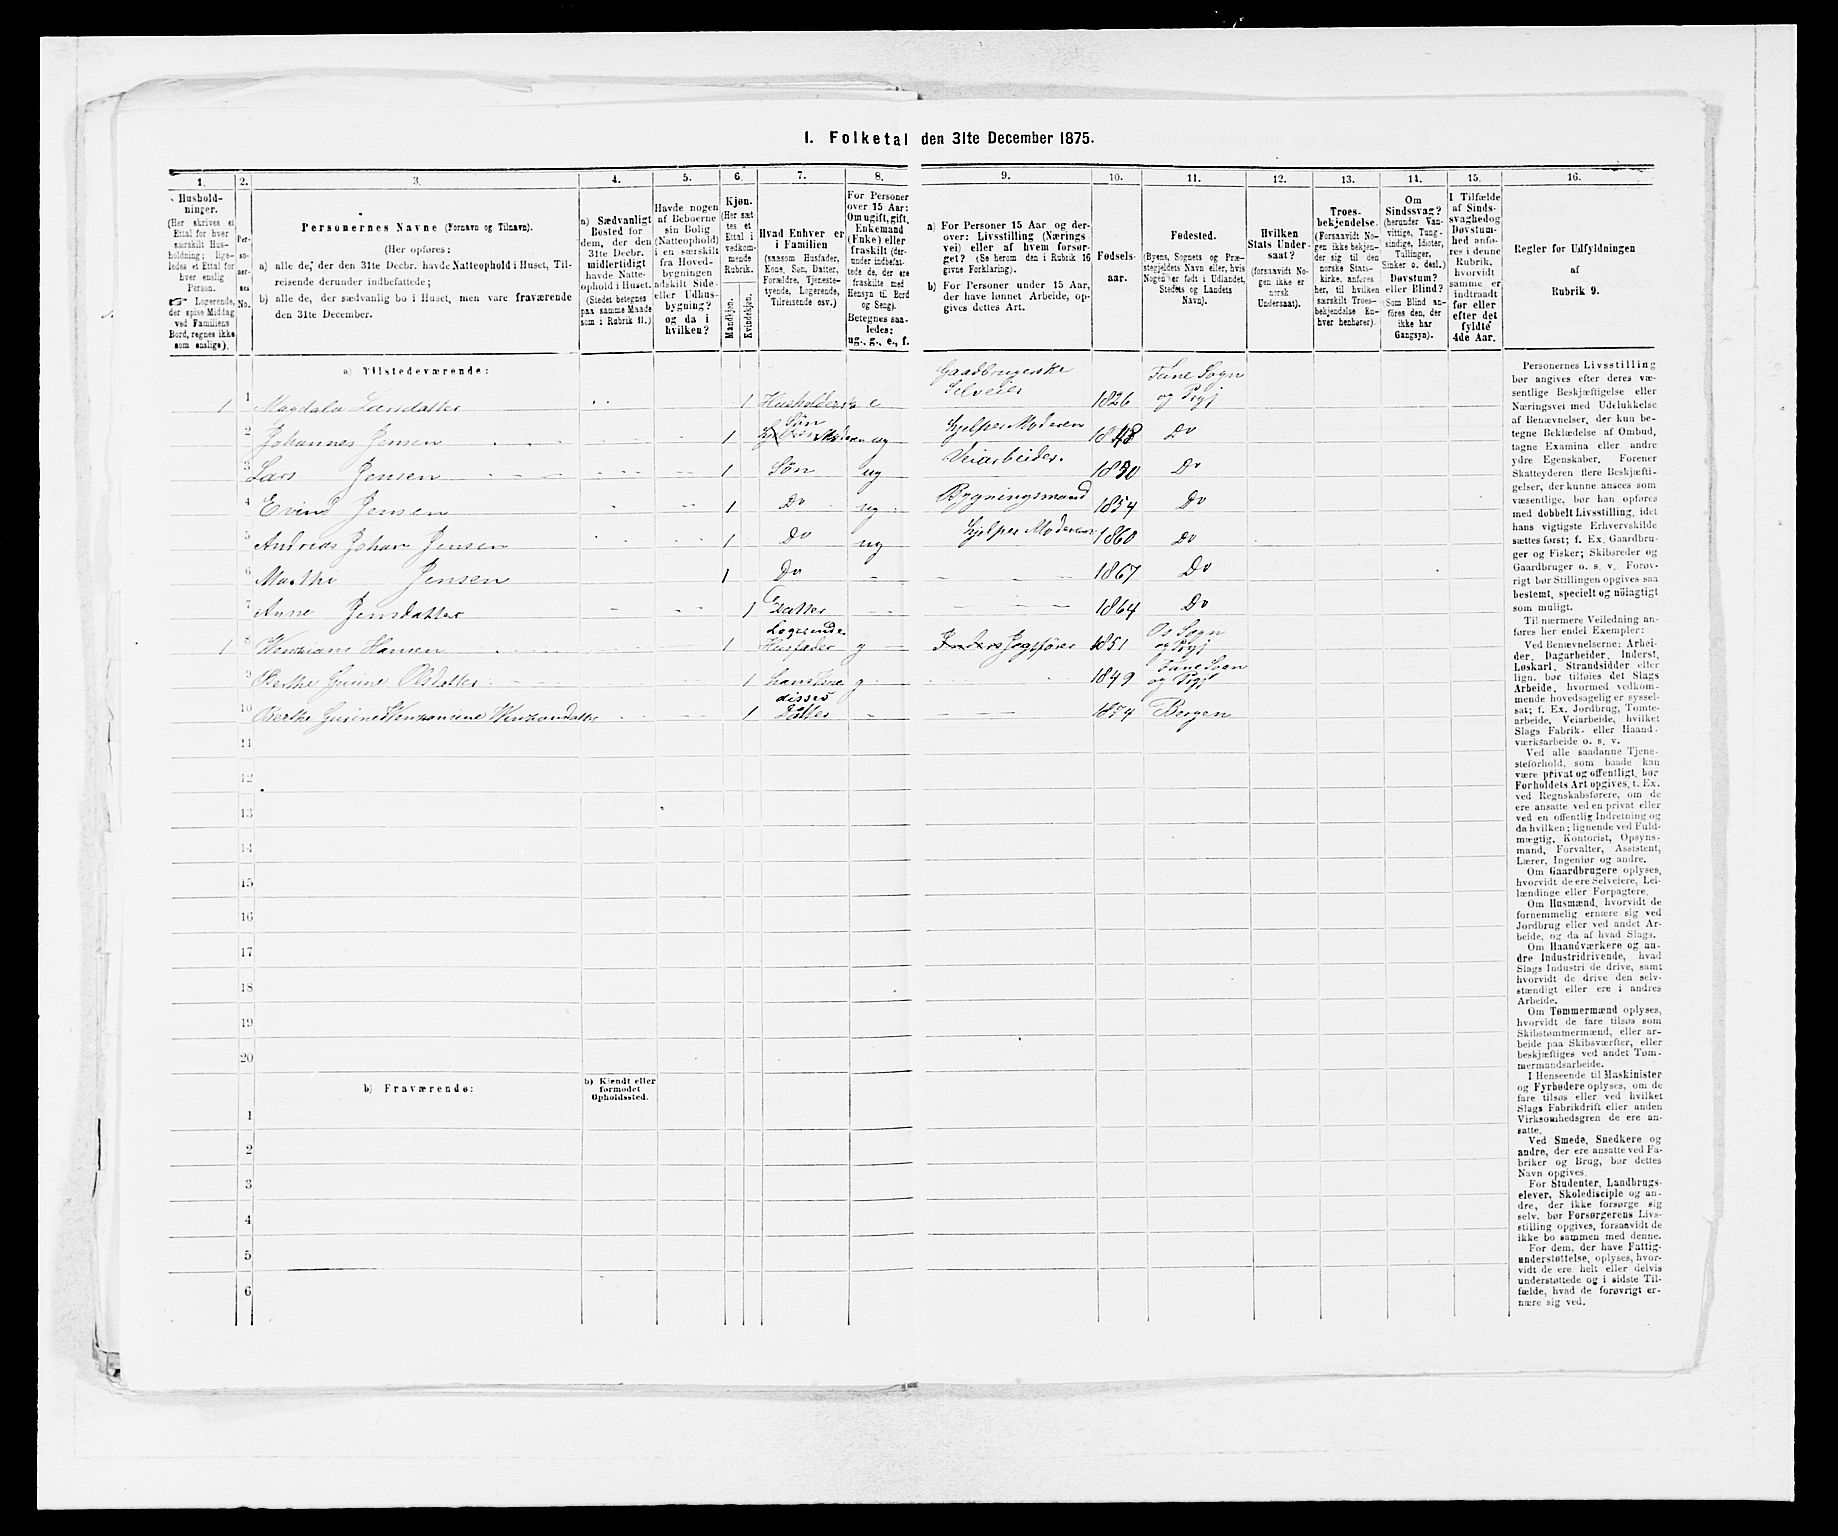 I. Folketal den 31te December 1875.
1. 2. 3. 4. 5. 6. 7. 8. 9. 10. 11. 12. 13. 14. 15. 16.
Husholdninger.
(Her skrives et
Ettal for hver
særskilt Hus-
holdning; lige-
ledes et Ettal for
hver enslig
Person.
Logerende,
der spise Middag
ved Familiens
Bord, regnes ikke
som enslige).
Per-
so-
ner-
nes
No.
Personernes Navne (Fornavn og Tilnavn).
(Her opføres:
a) alle de, der den 31te Decbr. havde Natteophold i Huset, Til-
reisende derunder indbefattede;
b) alle de, der sædvanlig bo i Huset, men vare fraværende
den 31te December.
a) Sædvanligt
Bosted for
dem, der den
31te Decbr.
midlertidigt
havde Natte-
ophold i Huset.
(Stedet betegnes
paa samme Maade
som i Rubrik 11.)
Havde nogen
af Beboerne
sin Bolig
(Natteophold)
i en særskilt
fra Hovedbygningen
adskilt Side-
eller Udhus-
bygning?
og da i
hvilken?
Kjøn.
(Her sæt-
tes et
Ettal i
vedkom-
mende
Rubrik.
Mandkjøn.
Kvindekjøn.
Hvad Enhver er
i Familien
(saasom Husfader,
Kone, Søn, Datter,
Forældre, Tjeneste-
tyende, Logerende,
Tilreisende osv.)
For Personer
over 15 Aar:
Om ugift, gift,
Enkemand
(Enke) eller
fraskilt (der-
under indbefat-
tede de, der ere
fraskilte med
Hensyn til Bord
og Seng).
Betegnes saa-
ledes:
ug., g., e., f.
a) For Personer 15 Aar og der-
over: Livsstilling (Nærings-
vei) eller af hvem forsør-
get? (Se herom den i Rubrik 16
givne Forklaring).
b) For Personer under 15 Aar,
der have lønnet Arbeide, op-
gives dettes Art.
Fødsels-
aar.
Fødested.
(Byens, Sognets og Præ-
stegjeldets Navn eller, hvis
Nogen er født i Udlandet,
Stedets og Landets
Navn).
Hvilken
Stats Under-
saat?
(forsaavidt No-
gen ikke er
norsk
Undersaat).
Troes-
bekjendelse.
(Forsaavidt No-
gen ikke bekjen-
der sig til den
norske Stats-
kirke, anføres
her, til hvilken
særskilt Troes-
bekjendelse En-
hver henhører).
Om
Sindssvag?
(herunder Van-
vittige, Tung-
sindige, Idioter,
Tullinger,
Sinker o. desl.)
Døvstum?
eller Blind?
(Som Blind an-
føres den, der
ikke har
Gangsyn).
I Tilfælde
af Sinds-
svaghed og
Døvstum-
hed anfø-
res i denne
Rubrik,
hvorvidt
samme er
indtraadt
før eller
efter det
fyldte
4de Aar.
Regler for Udfyldningen
af
Rubrik 9.
a) Tilstedeværende:
1 1 Magdala Larsdatter 1 e Gaadbrugerske Selveier 1826 Fane Sogn og Prgj
2 Johannes Jensen 1 Søn ug Hjelper Moderen 1848 Do
3 Lars Jensen 1 Søn ug Veiarbeider. 1850 Do
4 Evind Jensen 1 Do ug Bygningsmand 1854 Do
5 Andreas Johan Jensen 1 Do ug Hjelper Moderen 1860 Do
6 Marthe Jensen 1 Do 1867 Do
7 Anne Jensdatter 1 Datter 1864 Do
1 8 Hansen 1 Logerende Husfader g 1851 Os Sogn og Prgj
9 Berthe Gurine Olsdatter 1 hans Kone g 1849 Fane Sogn og Prgj
10 Berthe Gurine 1 disses Datter 1874 Bergen
11
12
13
14
15
16
17
18
19
20
b) Fraværende:
b) Kjendt eller
formodet
Opholdssted.
1
2
3
4
5
6
Personernes Livsstilling
bør angives efter deres væ-
sentlige Beskjæftigelse eller
Næringsvei med Udelukkelse
af Benævnelser, der kun be-
tegne Beklædelse af Ombud,
tagne Examina eller andre
ydre Egenskaber. Forener
Skatteyderen flere Beskjæfti-
gelser, der kunne ansees som
væsentlige, bør han opføres
med dobbelt Livsstilling, idet
hans vigtigste Erhvervskilde
sættes først; f. Ex. Gaardbru-
ger og Fisker; Skibsreder og
Gaardbruger o. s. v. Forøv-
rigt bør Stillingen opgives saa
bestemt, specielt og nøiagtigt
som muligt.
Til nærmere Veiledning an-
føres her endel Exempler:
Ved Benævnelserne: Arbei-
der, Dagarbeider, Inderst,
Løskarl, Strandsidder eller
lign. bør tilføies det Slags
Arbeide, hvormed vedkom-
mende hovedsagelig er syssel-
sat; f. Ex. Jordbrug, Tomte-
arbeide, Veiarbeide, hvilket
Slags Fabrik- eller Haand-
værksarbeide o. s. v.
Ved alle saadanne Tjene-
steforhold, som baade kan
være privat og offentligt, bør
Forholdets Art opgives, t. Ex.
ved Regnskabsførere, om de
ere ansatte ved en privat eller
ved en offentlig Indretning og
da hvilken; lignende ved Fuld-
mægtig, Kontorist, Opsyns-
mand, Forvalter, Assistent,
Lærer, Ingeniør og andre.
Om Gaardbrugere oplyses,
hvorvidt de ere Selveiere, Lei-
lændinge eller Forpagtere.
Om Husmænd, hvorvidt de
fornemmelig ernære sig ved
Jordbrug eller ved andet Ar-
beide, og da af hvad Slags.
Om Haandværkere og an-
dre Industridrivende, hvad
Slags Industri de drive, samt
hvorvidt de drive den selv-
stændigt eller ere i andres
Arbeide.
Om Tømmermænd oplyses,
hvorvidt de fare tilsøs som
Skibstømmermænd, eller ar-
beide paa Skibsværfter, eller
beskjæftiges ved andet Tøm-
mermandsarbeide.
I Henseende til Maskinister
og Fyrbødere oplyses, om de
fare tilsøs eller ved hvilket
Slags Fabrikdrift eller anden
Virksomhedsgren de ere an-
satte.
Ved Smede, Snedkere og
andre, der ere ansatte ved Fa-
briker og Brug, bør dettes
Navn opgives.
For Studenter, Landbrugs-
elever, Skoledisciple og an-
dre, der ikke forsørge sig
selv, bør Forsørgerens Livs-
stilling opgives, forsaavidt de
ikke bo sammen med denne.
For dem, der have Fattig-
understøttelse, oplyses, hvor-
vidt de ere helt eller delvis
understøttede og i sidste Til-
fælde, hvad de forøvrigt er-
nære sig ved.